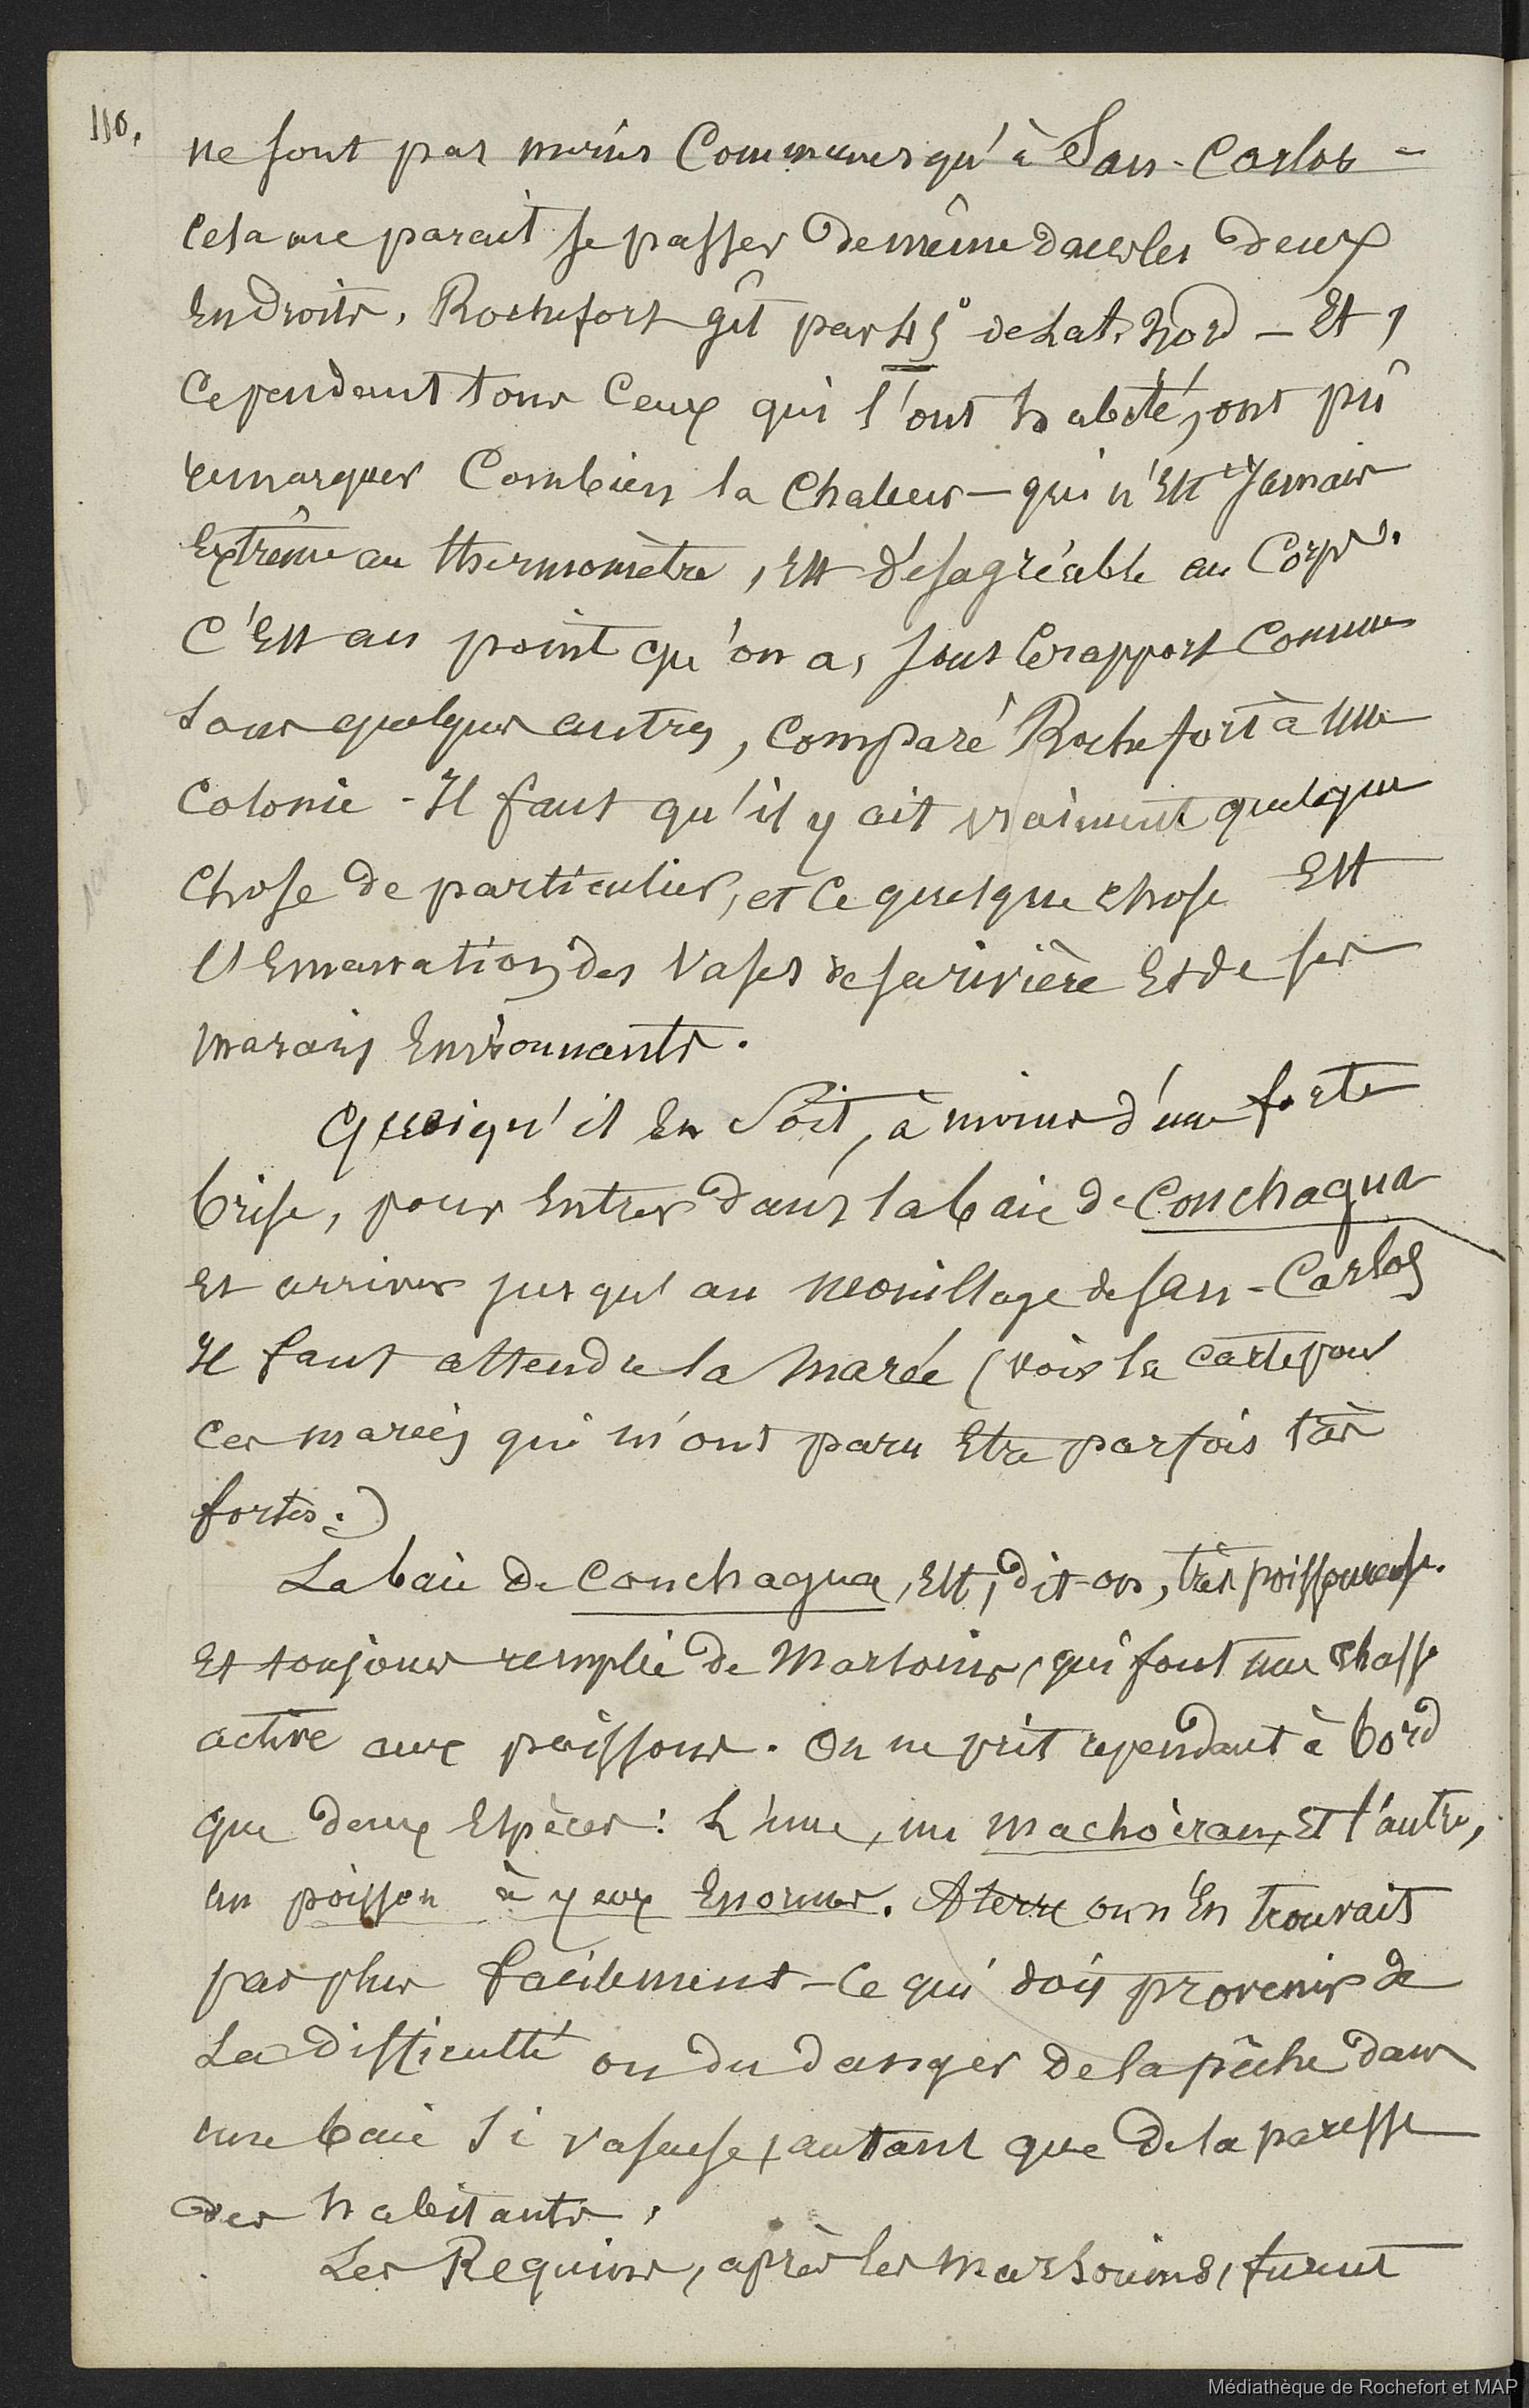 110.
ne sont pas moins Communes qu'à San-Carlos -
Cela me parait se passer de même dans les deux
Endroits. Rochefort gît par 45° de Lat. Nord - Et,
Cependant tous Ceux qui l'ont habité, ont pû
remarquer Combien la Chaleur - qui n'Est Jamais
Extrême au thermomètre, Est désagréable au Corps.
C'Est au point qu'on a, sous le rapport Comme
sous quelques autres, Comparé Rochefort à une
Colonie - Il faut qu'il y ait vraiment quelque
Chose de particulier, et Ce quelque chose Est
l'Emanation des Vases de sa rivière Et de ses
marais Environnants.
Quoiqu'il En Soit, à moins d'une forte
brise, pour Entrer dans la baie de Conchagua
Et arriver jusqu'au mouillage de San-Carlos
Il faut attendre la Marée (voir la carte pour
Ces marées qui m'ont paru Etre parfois très
fortes.)
La baie de Conchagua, Est, dit-on, très poissonneuse.
Et toujours remplie de Marsouins, qui font une chasse
active aux poissons. On ne prit cependant à bord
que deux Espèces: L'une, un machoiran, Et l'autre,
un poisson à yeux Enormes. A terre on n'En trouvait
pas plus facilement - Ce qui doit provenir de
La difficulté ou du danger de la pêche dans
une baie Si vaseuse, autant que de la paresse
des habitants.
Les Requins, après les Marsouins, furent
Médiathèque de Rochefort et MAP